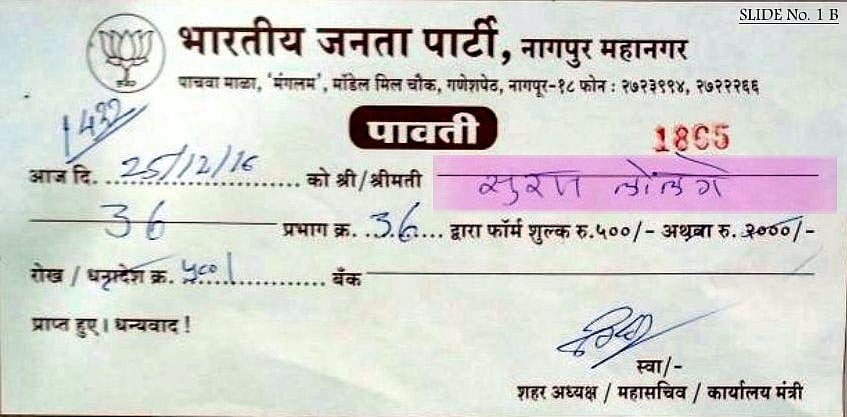 SLIDE No. 1 B
भारतीय जनता पार्टी, नागपुर महानगर
पाचवा माळा, 'मंगलम', मॉडेल मिल चौक, गणेशपेठ, नागपूर-१८ फोन : २७२३९९४, २७२२२६६
1432
पावती
1865
आज दि. 25/12/16 को श्री/श्रीमती सुरज लोलगे
36 प्रभाग क्र. 36 द्वारा फॉर्म शुल्क रु.५००/- अथवा रु. २०००/-
रोख / धनादेश क्र. ५००/ बैंक
प्राप्त हुए। धन्यवाद !
स्वा/-
शहर अध्यक्ष / महासचिव / कार्यालय मंत्री